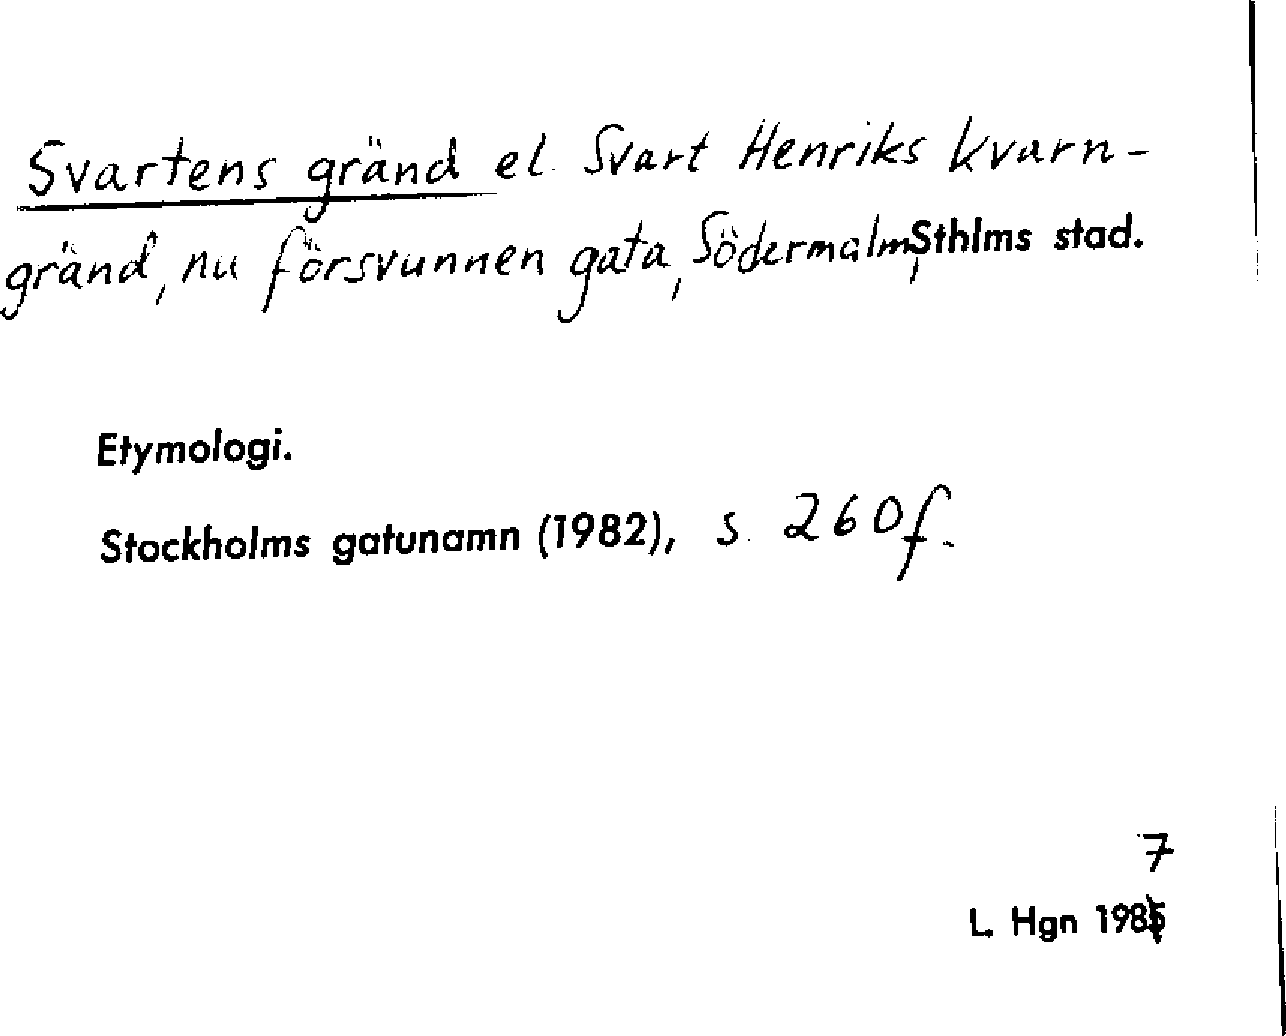 Svartens gränd el. Svart Henriks kvarn-
gränd, nu försvunnen gata, Södermalm, Sthlms stad.
Etymologi.
Stockholms gatunamn (1982), s. 260f.
7
L. Hgn 1985